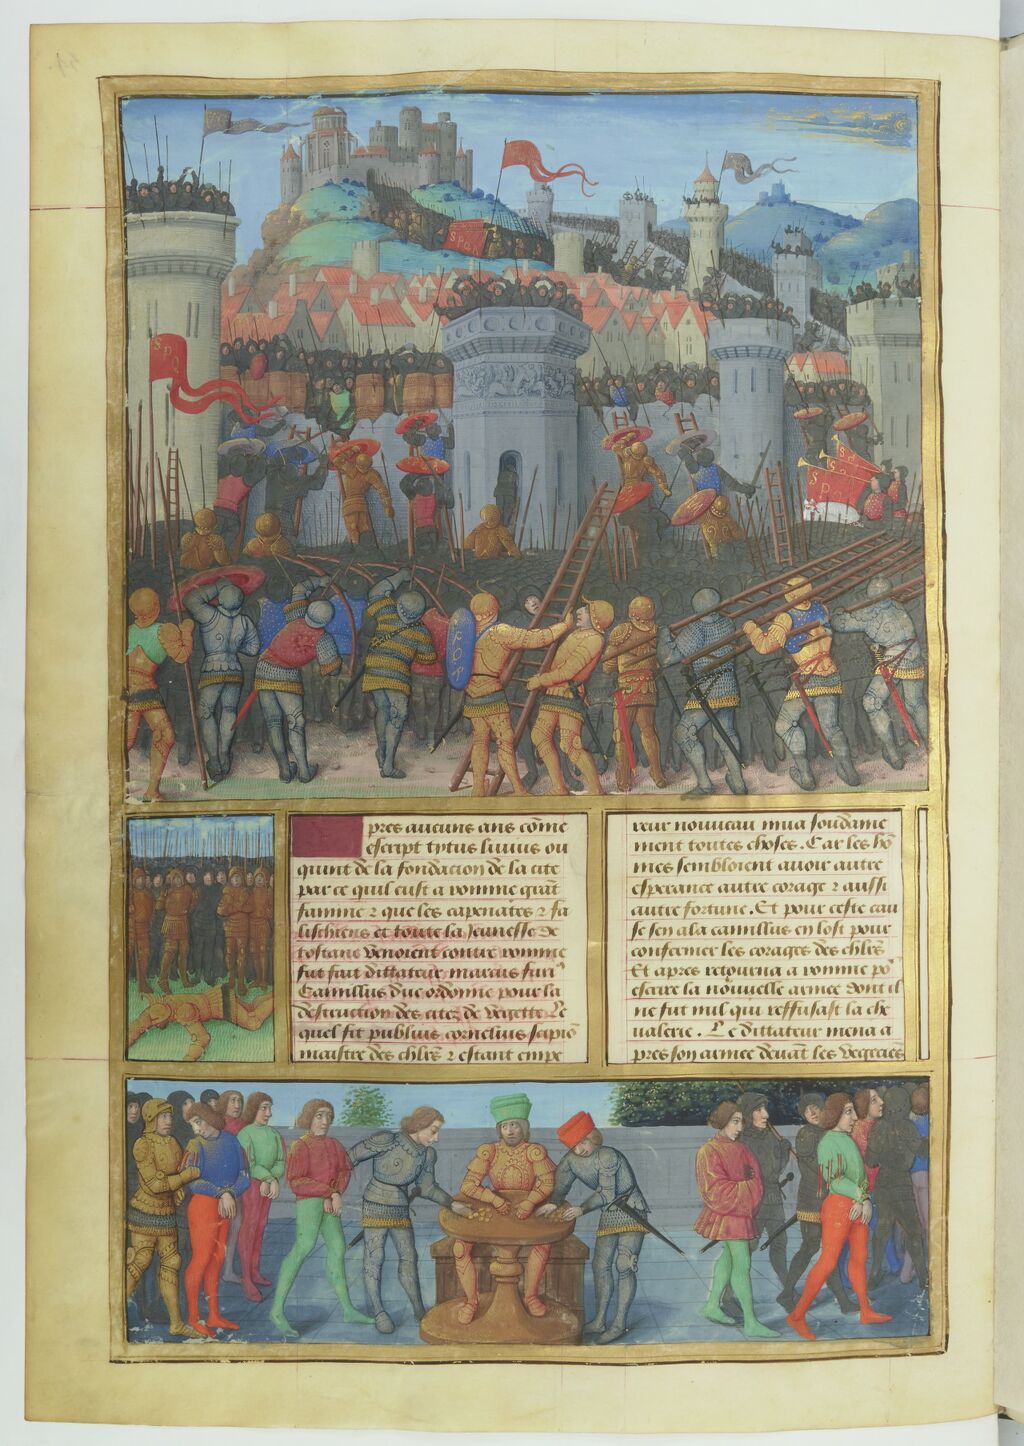 S P Q
SPQR
S P Q
pres aucuns ans cõme
escript tytus livius ou
quint de la fondacion de la cite
par ce quil eust a romme grãt
famine ⁊ que les capenates ⁊ fa
listhiens et toute la jeunesse de
tostane venoient contre romme
fut fait dittateur marcus furi⁹
Camillus duc ordonne pour la
destruction des citez de vegette Le
quel fit publius cornelius scipio
maistre des chlrs̃ ⁊ estant empe
reur nouveau mua soudaine
ment toutes choses. Car les hõ
mes sembloient avoir autre
esperance autre corage ⁊ aussi
autre fortune. Et pour ceste cau
se sen ala camillus en lost pour
confermer les corages des chlrs̃
Et apres retourna a romme po⁹
escrire la nouvelle armee dont il
ne fut nul qui reffusast la che
valerie. Le dittateur mena a
pres son armee devãt les vegeciẽs